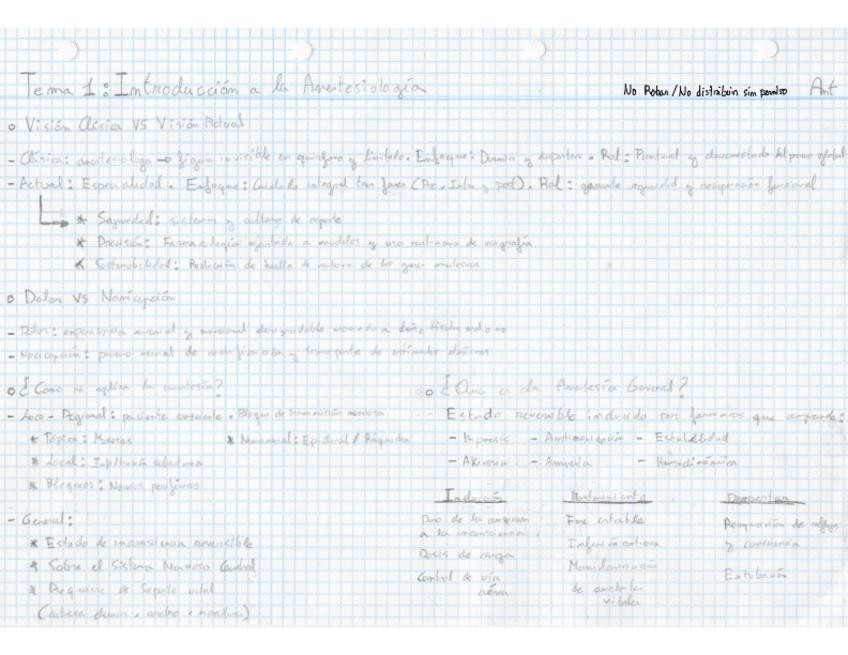 Tema 1: Introducción a la Anestesiología
No Robar/No distribuir sin permiso Ant
Visión Clásica VS Visión Actual
- Clásica: anestesiologo → figura invisible en quirófano y limitado. Enfoque: Dormir y despertar. Rol: Puntual y desconectado del proceso global
- Actual: Especialidad. Enfoque: Cuidado integral tras fases (Pre, Intra y post). Rol: garante seguridad y recuperación funcional
* Seguridad: sistemas y cultura de reporte
* Precisión: Farmacología ajustada a modelos y uso rutinario de ecografía
* Sostenibilidad: Reducción de huella de carbono de los gases
Dolor VS Nocicepción
- Dolor: experiencia sensorial y emocional desagradable asociada a daño tisular real o no
- Nocicepción: proceso neural de codificación y transporte de estímulos
¿Como se aplica la anestesia?
- Loco-Regional: paciente consciente. Bloqueo de transmisión nerviosa
* Tópica: Mucosas
* Neuroaxial: Epidural / Raquídea
* Local: Infiltración subcutanea
* Bloqueos: Nervios periféricos
- General:
* Estado de inconsciencia reversible
* Sobre el Sistema Nervioso Central
* Requiere de Soporte vital
¿Que es la Anestesia General?
Estado reversible inducido por farmacos que comprende:
- Hipnosis - Antinocicepción - Estabilidad
- Akinesia - Amnesia - Hemodinámica
Inducción
Paso de la consciencia
a la inconsciencia
Dosis de carga
Control de vía
aérea
Mantenimiento
Fase estable
Infusión continua
Monitorización
de constantes
vitales
Despertar
Recuperación de reflejos
y consciencia
Extubación